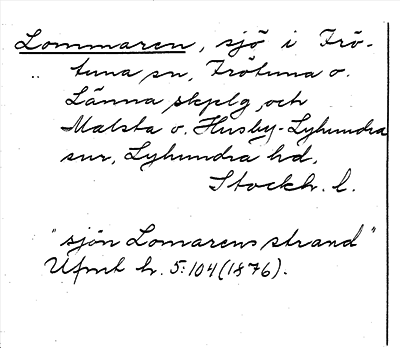 Lommaren, sjö i Frö-
tuna sn, Frötuna o.
Länna skplg och
Malsta o. Husby-Lyhundra
snr, Lyhundra hd,
Stockh. l.
"sjön Lomarens strand"
Ufmt h. 5:104 (1876).